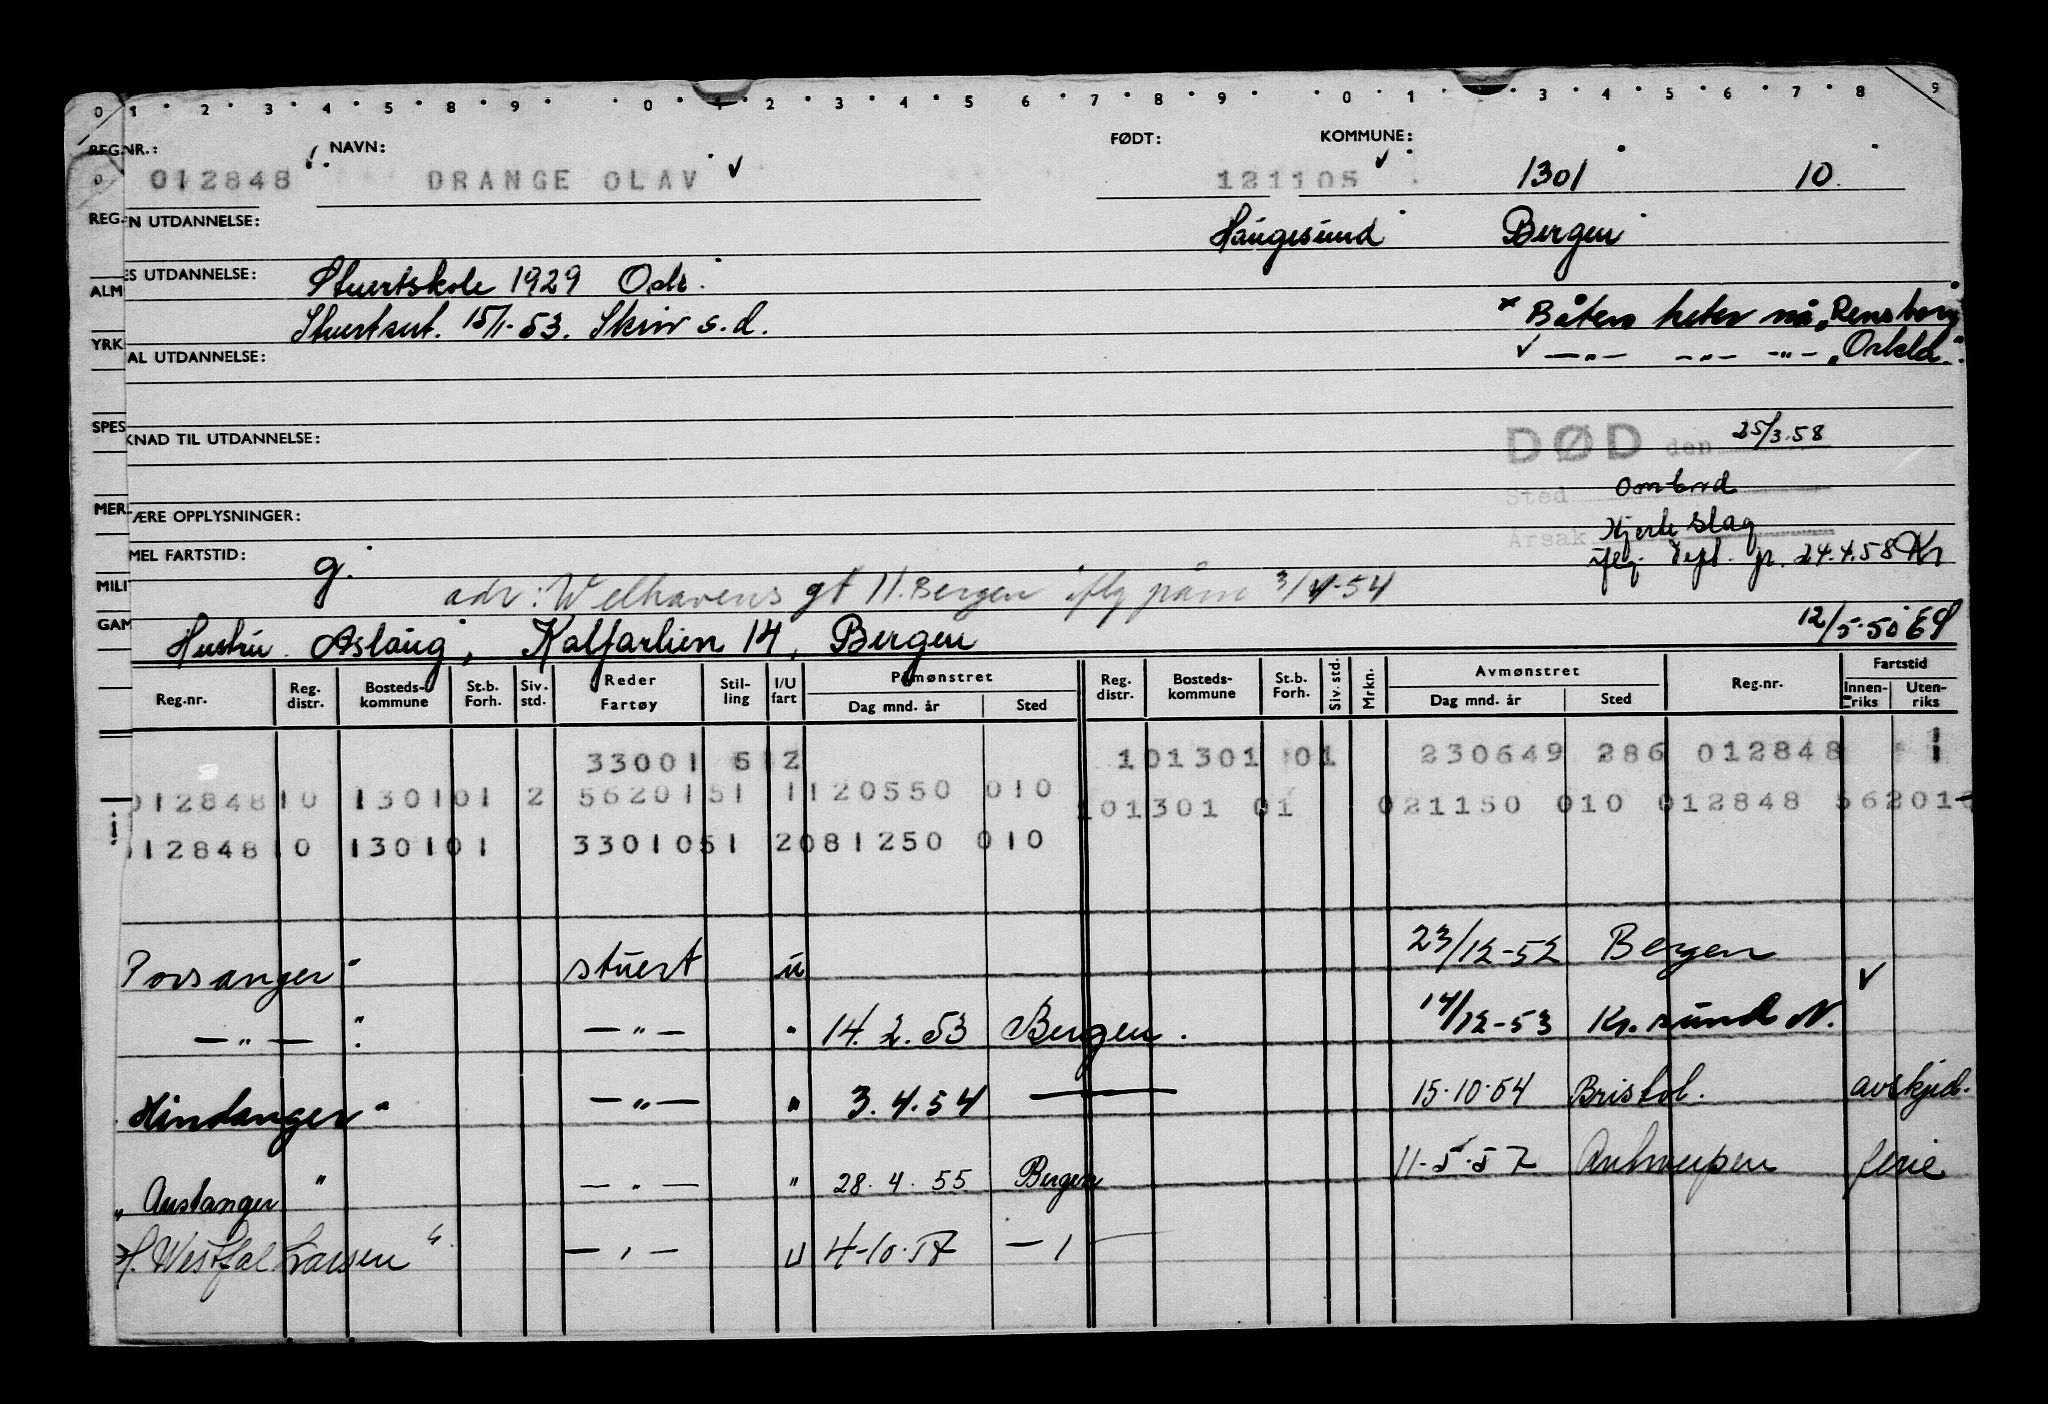 0 1 2 3 4 5 8 9 0 1 2 3 4 5 6 7 8 9 0 1 3 4 5 6 7 8 9
REG.NR.: NAVN: FØDT: KOMMUNE:
012848 DRANGE OLAV 121105 1301 10
REG. EN UTDANNELSE: Haugesund Bergen
ALM ES UTDANNELSE: Stuertskole 1929 Oslo
Stuertsert. 15/1-53. Skriv s.d. * Båten heter nå "Rensborg
YRK AL UTDANNELSE: ✓ — " — — " — — " — "Orkla".
SPES KNAD TIL UTDANNELSE: DØD den 25/3.58
Sted ombord
MER ÆRE OPPLYSNINGER: Årsak Hjerteslag
MEL FARTSTID: g. iflg. Dept. pr. 24.4.58 Kr
MILI adr: Welhavens gt 11. Bergen iflg påm 3/4-54
GAM Hustru Aslaug, Kalfarlien 14, Bergen 12/5-50 ES
Reg.nr. Reg. distr. Bosteds-kommune St.b. Forh. Siv. std. Reder Fartøy Stil-ling I/U fart Påmønstret Dag mnd. år Sted Reg. distr. Bosteds-kommune St.b. Forh. Siv. std. Mrkn. Avmønstret Dag mnd. år Sted Reg.nr. Fartstid Innen-riks Uten-riks
33001 5 2 101301 01 230649 286 012848
012848 10 1301 01 2 56201 51 1 120550 010 101301 01 021150 010 012848 56201
012848 10 1301 01 33010 51 2 081250 010
Porsanger" stuert u 23/12-52 Bergen
— " — " — " — " 14.2.53 Bergen. 14/12-53 Kr.sund N. ✓
Hindanger" — " — " 3.4.54 — 15.10.54 Bristol. avskjed.
"Austanger" — " — " 28.4.55 Bergen 11.5.57 Antwerpen ferie
H. Westfal Larsen" — " — U 4-10.57 — " —